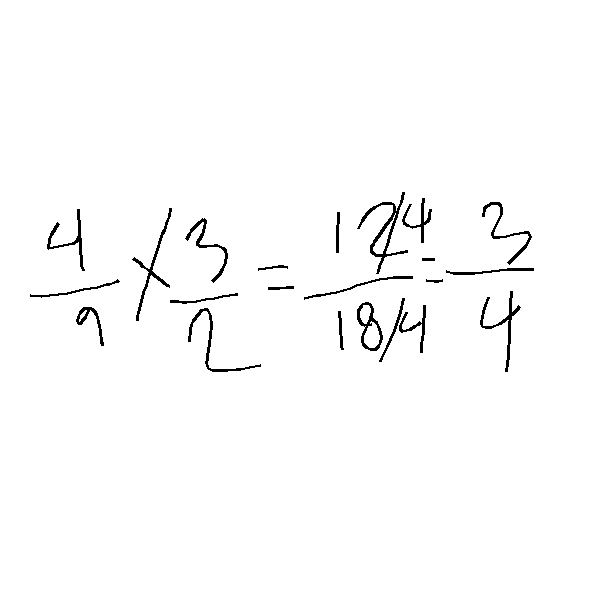 4/9 × 3/2 = 12/4 / 18/4 = 3/4